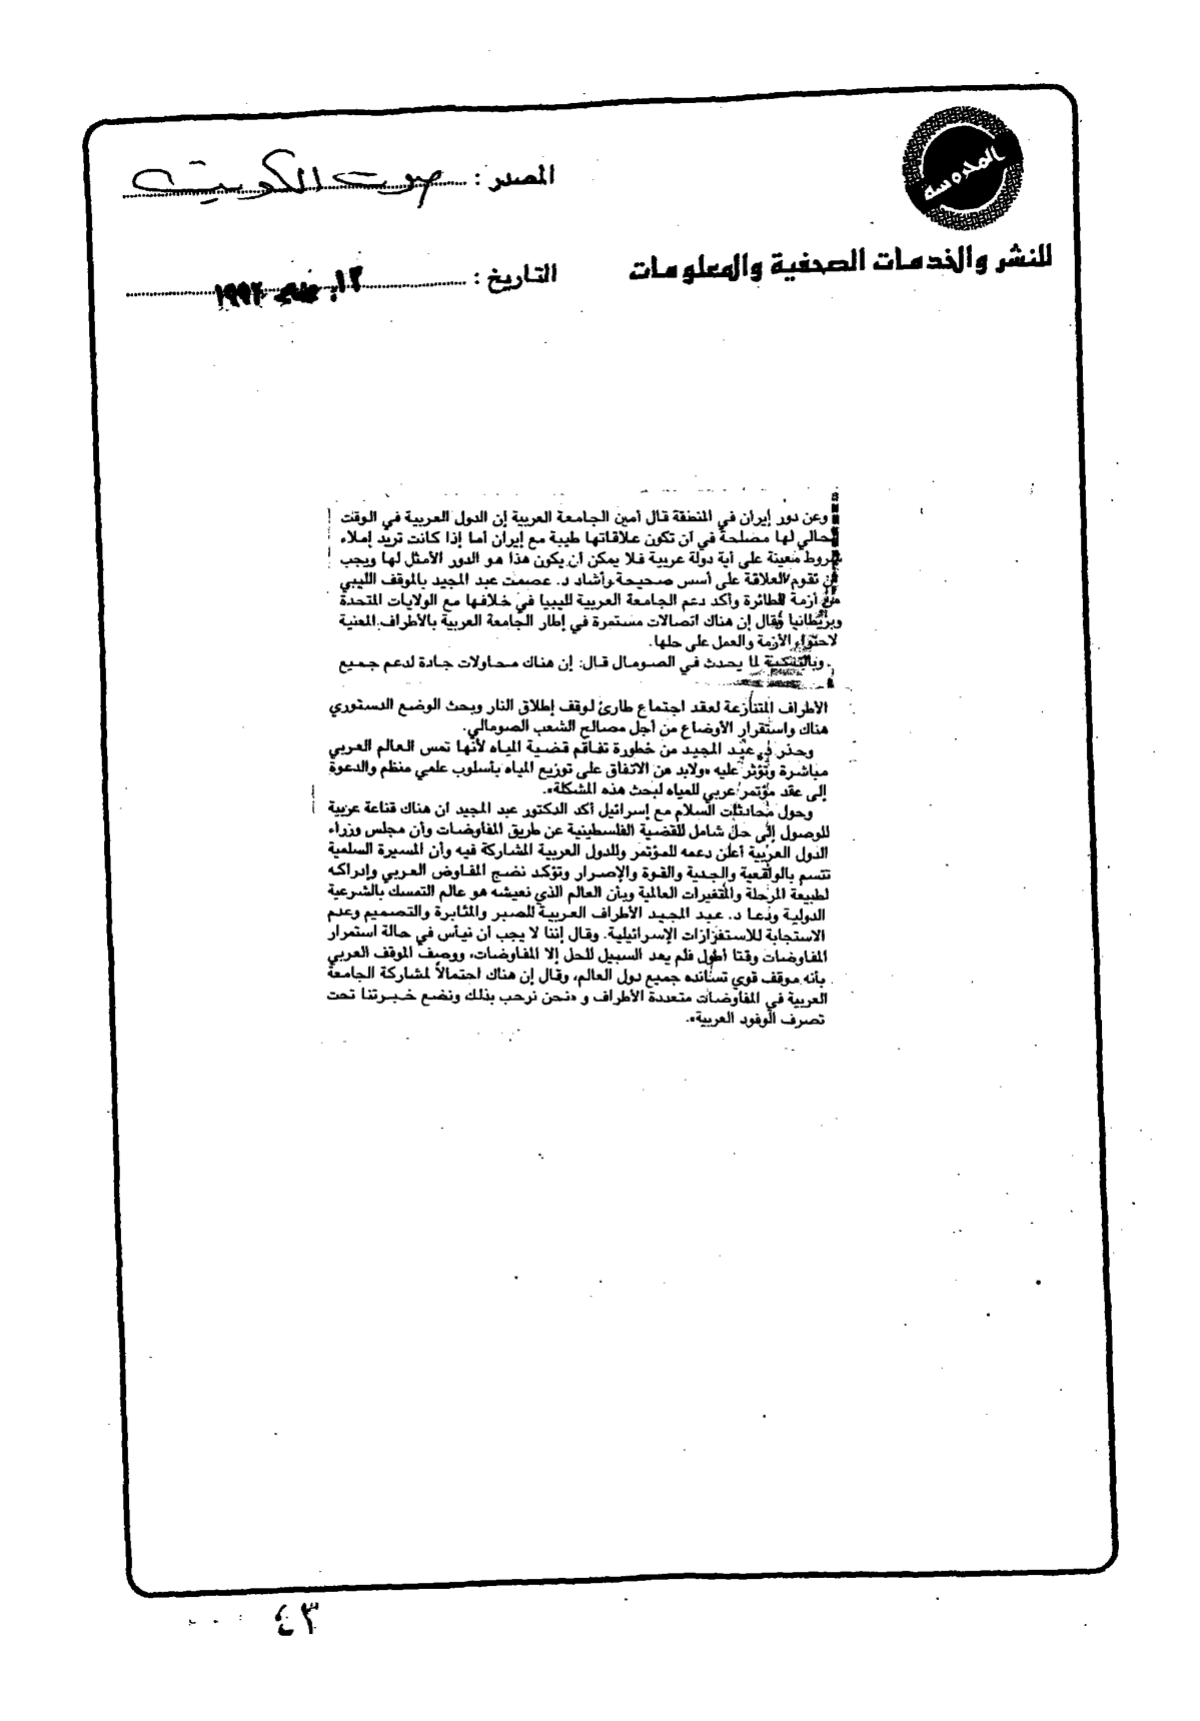 المحروسة
المصدر : صوت الكويت
للنشر والخدمات الصحفية والمعلومات
التاريخ : ١٩٩٢
وعن دور إيران في المنطقة قال أمين الجامعة العربية إن الدول العربية في الوقت
الحالي لها مصلحة في ان تكون علاقاتها طيبة مع إيران أما إذا كانت تريد إملاء
شروط معينة على أية دولة عربية فلا يمكن أن يكون هذا هو الدور الأمثل لها ويجب
أن تقوم العلاقة على أسس صحيحة وأشاد د. عصمت عبد المجيد بالموقف الليبي
أزمة الطائرة وأكد دعم الجامعة العربية لليبيا في خلافها مع الولايات المتحدة
وبريطانيا وقال إن هناك اتصالات مستمرة في إطار الجامعة العربية بالأطراف المعنية
لاحتواء الأزمة والعمل على حلها.
وبالنسبة لما يحدث في الصومال قال: إن هناك محاولات جادة لدعم جميع
الأطراف المتنازعة لعقد اجتماع طارئ لوقف إطلاق النار وبحث الوضع الدستوري
هناك واستقرار الأوضاع من أجل مصالح الشعب الصومالي.
وحذر د. عبد المجيد من خطورة تفاقم قضية المياه لأنها تمس العالم العربي
مباشرة وتؤثر عليه «ولابد من الاتفاق على توزيع المياه بأسلوب علمي منظم والدعوة
إلى عقد مؤتمر عربي للمياه لبحث هذه المشكلة».
وحول محادثات السلام مع إسرائيل أكد الدكتور عبد المجيد ان هناك قناعة عربية
للوصول إلى حل شامل للقضية الفلسطينية عن طريق المفاوضات وأن مجلس وزراء
الدول العربية أعلن دعمه للمؤتمر وللدول العربية المشاركة فيه وأن المسيرة السلمية
تتسم بالواقعية والجدية والقوة والإصرار وتؤكد نضج المفاوض العربي وإدراكه
لطبيعة المرحلة والمتغيرات العالمية وبأن العالم الذي نعيشه هو عالم التمسك بالشرعية
الدولية ودعا د. عبد المجيد الأطراف العربية للصبر والمثابرة والتصميم وعدم
الاستجابة للاستفزازات الإسرائيلية. وقال إننا لا يجب ان نيأس في حالة استمرار
المفاوضات وقتا أطول فلم يعد السبيل للحل إلا المفاوضات، ووصف الموقف العربي
بأنه موقف قوي تسانده جميع دول العالم، وقال إن هناك احتمالاً لمشاركة الجامعة
العربية في المفاوضات متعددة الأطراف و «نحن نرحب بذلك ونضع خبرتنا تحت
تصرف الوفود العربية».
٤٣